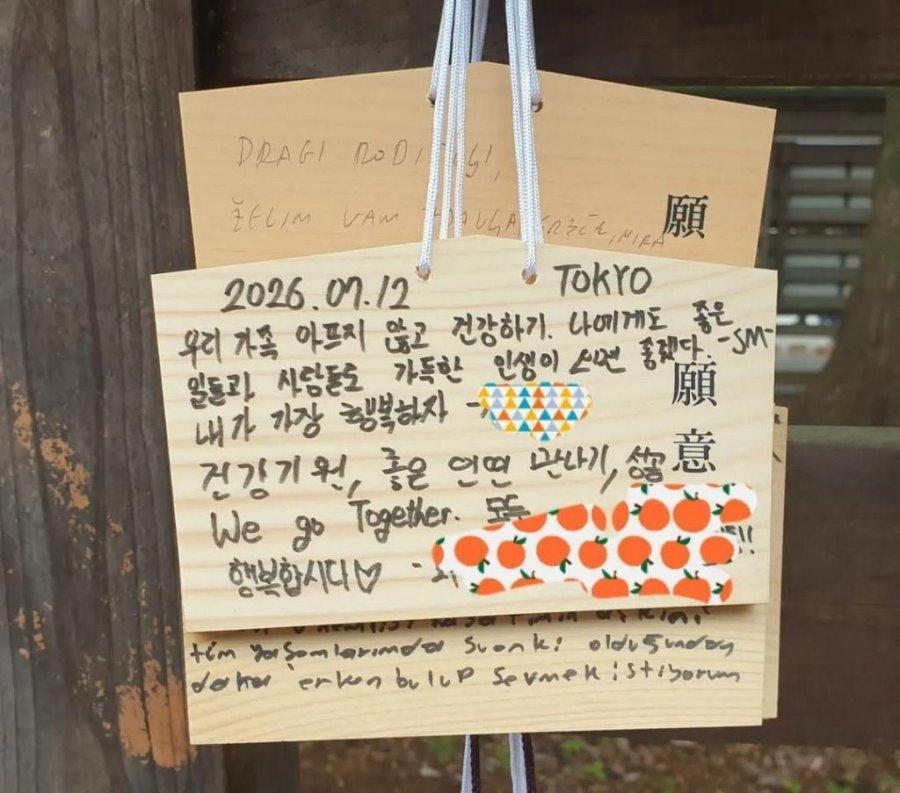 DRAGI RODITELJI,
ŽELIM VAM
願
2026.07.12 TOKYO
우리 가족 아프지 않고 건강하기. 나에게도 좋은
일들과 사람들로 가득한 인생이 좋겠다. -SM-
내가 가장 행복하자 -
건강기원, 좋은 인연 만나기, 성공
We go Together. 모두
행복합시다♡ -
願意
tüm yaşamlarımda Suanki olduğundan
daha erken bulup sevmek istiyorum